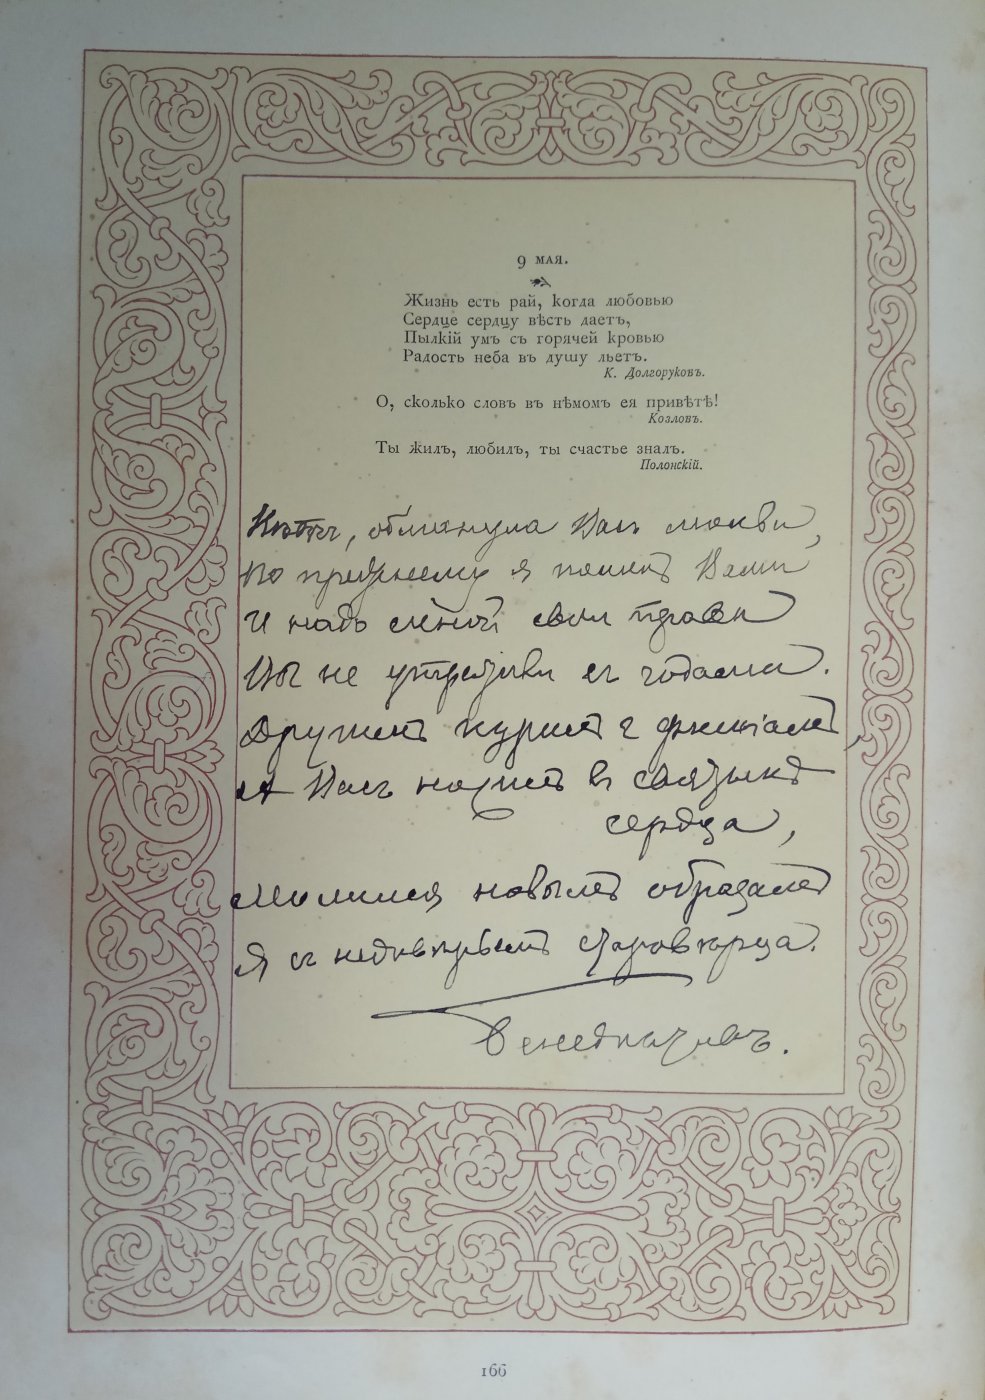 9 МАЯ.
Жизнь есть рай, когда любовью
Сердце сердцу вѣсть даетъ,
Пылкій умъ съ горячей кровью
Радость неба въ душу льетъ.
К. Долгоруковъ.
О, сколько словъ въ нѣмомъ ея привѣтѣ!
Козловъ.
Ты жилъ, любилъ, ты счастье зналъ.
Полонскій.
Нѣтъ, обманула Васъ молва,
По прежнему я полонъ Вами
И надо мной свои права
Вы не утратили съ годами.
Другимъ курилъ я фиміамъ,
А Васъ носилъ въ святынѣ
сердца,
Молился новымъ образамъ
Я съ недовѣрьемъ старовѣрца.
166